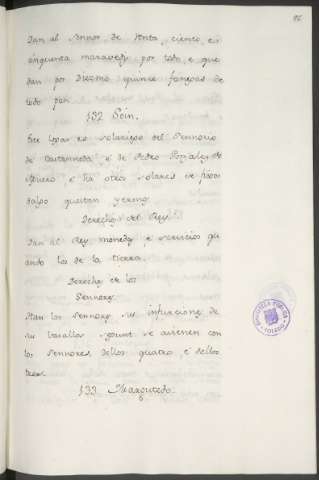 86
Dan al Sennor de Renta, ciento, e
cinquenta maravedis por todo, e que
dan por Diezmo quince fanegas de
todo pan.
§32 Soin.
Este logar es solariego del Sennorio
de Castanneda, e de Pedro Gonzales de
Aguero, e ha otros solares de fijos
dalgo que estan yermos.
Derechos del Rey.
Dan al Rey monedas, e servicios qu
ando los de la tierra.
Derechos de los
Sennores.
Dan los Sennores su infurcione de
su basallos, segunt se avienen con
los Sennores dellos quatro, e dellos
tres.
§33 Marquredo.
BIBLIOTECA PUBLICA
TOLEDO